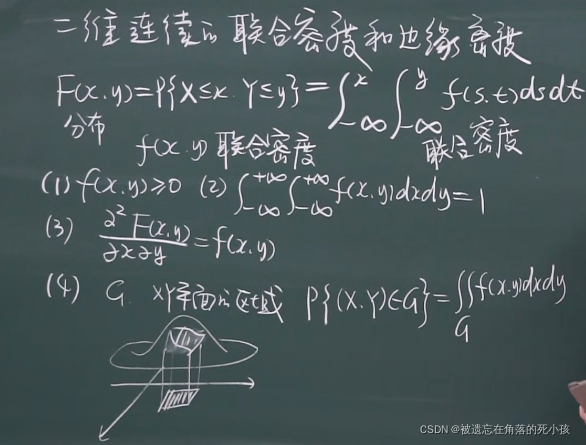 二维连续的联合密度和边缘密度
F(x,y)=P{X≤x,Y≤y}=∫_{-∞}^{x}∫_{-∞}^{y}f(s,t)dsdt
分布 f(x,y)联合密度 联合密度
(1) f(x,y)≥0 (2) ∫_{-∞}^{+∞}∫_{-∞}^{+∞}f(x,y)dxdy=1
(3) ∂²F(x,y)/∂x∂y=f(x,y)
(4) G. XY平面的区域 P{(X,Y)∈G}=∬_G f(x,y)dxdy
CSDN @被遗忘在角落的死小孩